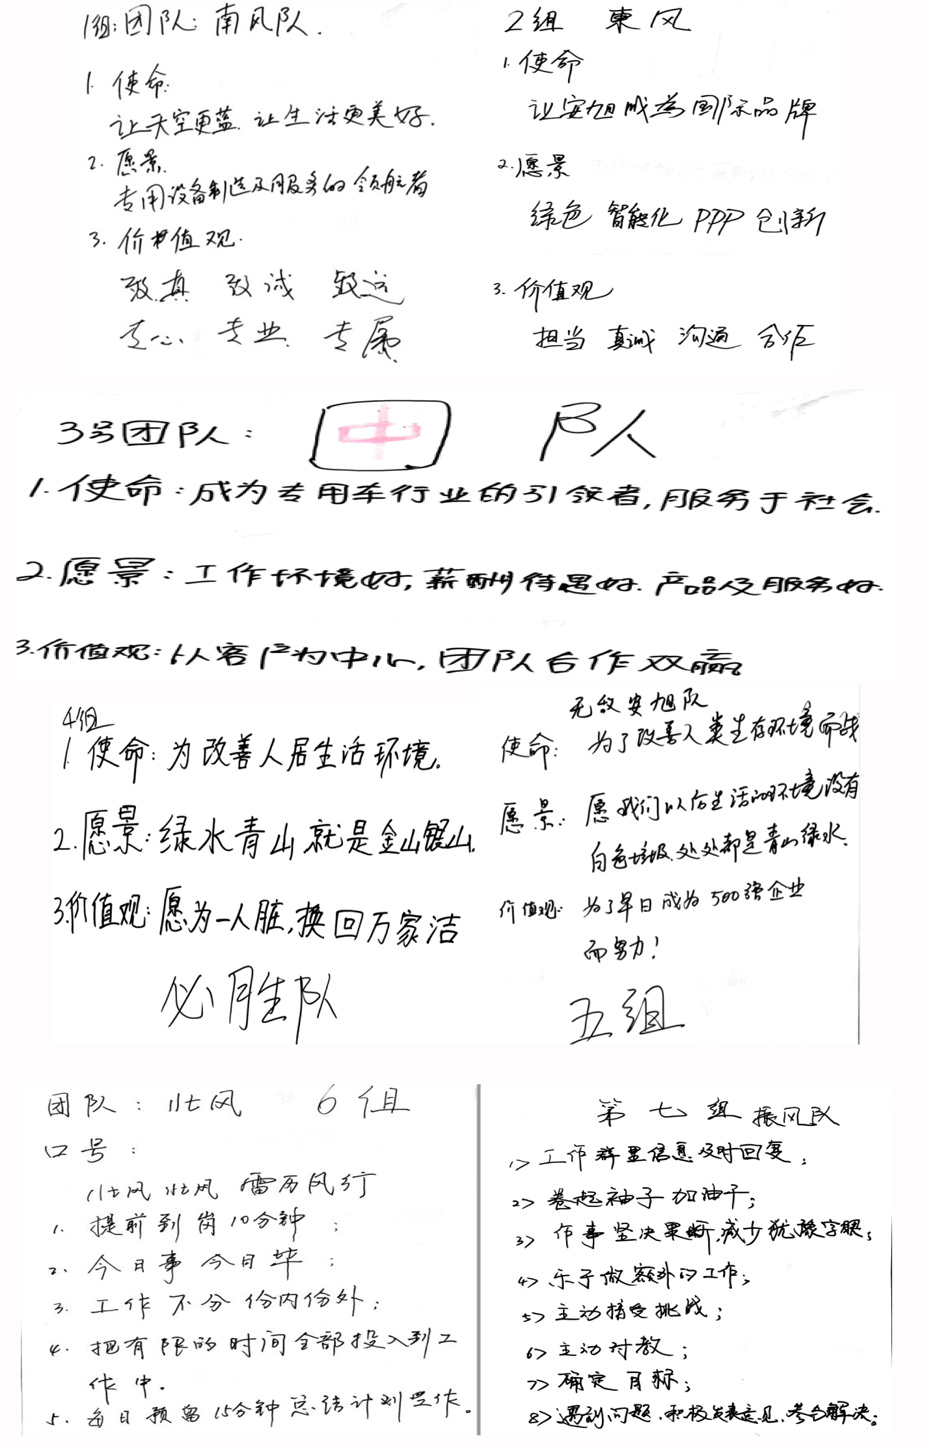 1组:团队:南风队.
1. 使命:
让天空更蓝 让生活更美好.
2. 愿景.
专用设备制造及服务的领航者
3. 价值观.
致真 致诚 致远
专心 专业 专属
2组 東风
1.使命
让安旭成为国际品牌
2.愿景
绿色 智能化 PPP 创新
3.价值观
担当 真诚 沟通 合作
3号团队: 中 队
1.使命:成为专用车行业的引领者,服务于社会.
2.愿景:工作环境好,薪酬待遇好.产品及服务好.
3.价值观:以客户为中心,团队合作双赢
4组
1.使命:为改善人居生活环境.
2.愿景:绿水青山就是金山银山.
3.价值观:愿为一人脏,换回万家洁
必胜队
无敌安旭队
使命: 为了改善人类生存环境而战
愿景: 愿我们以后生活的环境没有
白色垃圾.处处都是青山绿水.
价值观: 为了早日成为500强企业
而努力!
五组
团队: 壮风 6组
口号:
壮风壮风 雷厉风行
1. 提前到岗10分钟;
2. 今日事今日毕;
3. 工作不分份内份外;
4. 把有限的时间全部投入到工
作中.
5. 每日预留15分钟总结计划工作.
第七组 振风队
1>工作群里信息及时回复;
2>卷起袖子加油干;
3>作事坚决果断,减少犹豫字眼;
4>乐于做额外的工作;
5>主动接受挑战;
6>主动讨教;
7>确定目标;
8>遇到问题,积极发表意见,解决;